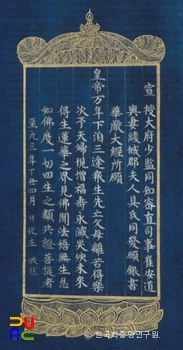 宣授大府少監同知密直司事崔安道
與妻綾城郡夫人具氏同發願銀書
華嚴大經所願
皇帝万年下洎三途衆生先亡父母離苦得樂
次予夫婦現增福壽永滅灾殃未來
得生蓮華之界見佛聞法悟無生忍
如佛度一切四生之類共證菩提者
至元三年丁丑四月 日化主
© 한국학중앙연구원